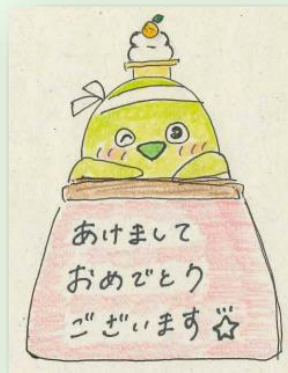 あけまして
おめでとり
ございます☆